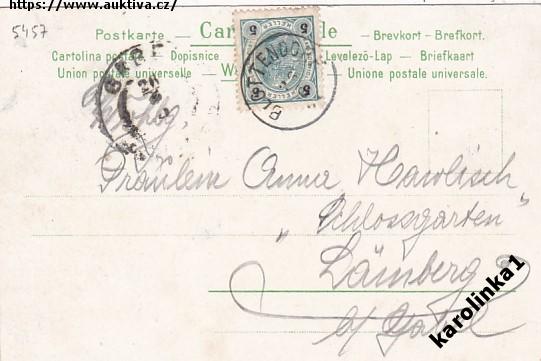 https://www.auktiva.cz/
5457
Postkarte. — Carte postale — Brevkort - Brefkort.
Cartolina postale Dopisnice Levelező-Lap — Briefkaart
Union postale universelle — Unione postale universale.
5 HELLER 5
Fräulein Anna Hawlisch
„Schlossgarten"
Lämberg
b/ Gabel
karolinka1